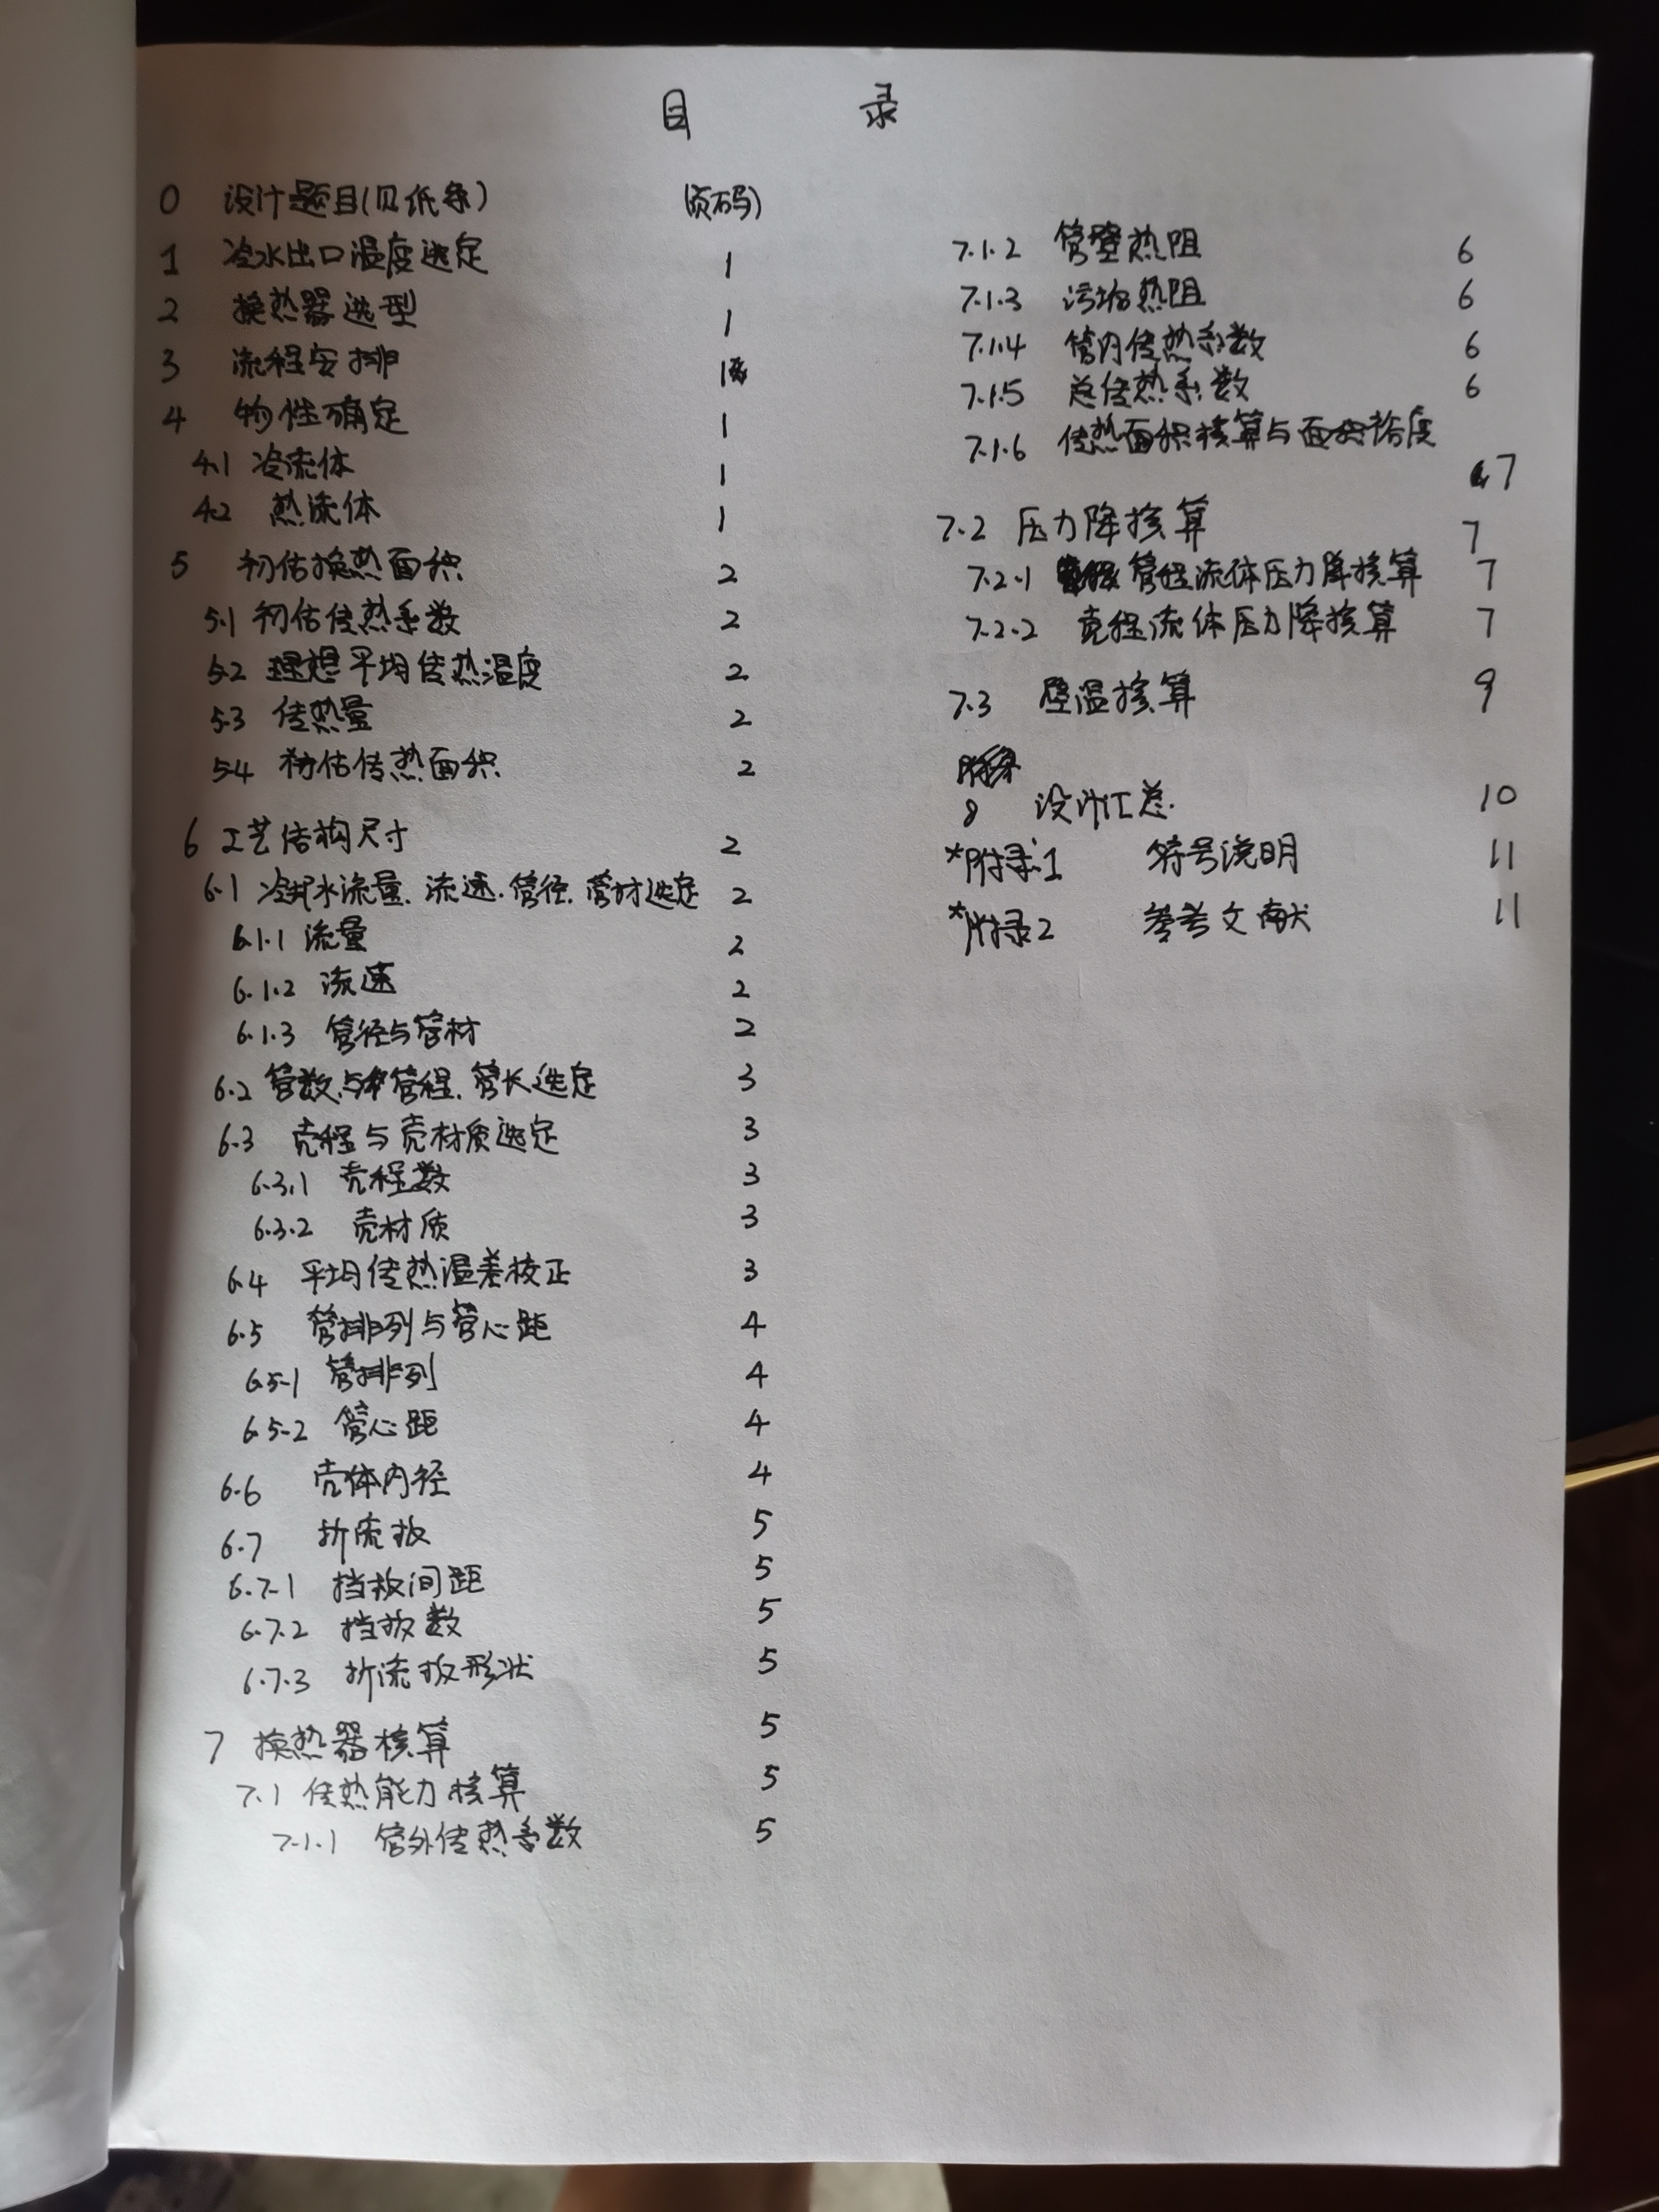 目 录
0 设计题目(见纸条) (页码)
1 冷水出口温度选定 1
2 换热器选型 1
3 流程安排 1
4 物性确定 1
4.1 冷流体 1
4.2 热流体 1
5 初估换热面积 2
5.1 初估传热系数 2
5.2 理想平均传热温度 2
5.3 传热量 2
5.4 初估传热面积 2
6 工艺结构尺寸 2
6.1 冷却水流量、流速、管径、管材选定 2
6.1.1 流量 2
6.1.2 流速 2
6.1.3 管径与管材 2
6.2 管数与管程、管长选定 3
6.3 壳程与壳材质选定 3
6.3.1 壳程数 3
6.3.2 壳材质 3
6.4 平均传热温差校正 3
6.5 管排列与管心距 4
6.5.1 管排列 4
6.5.2 管心距 4
6.6 壳体内径 4
6.7 折流板 5
6.7.1 挡板间距 5
6.7.2 挡板数 5
6.7.3 折流板形状 5
7 换热器核算 5
7.1 传热能力核算 5
7.1.1 管外传热系数 5
7.1.2 管壁热阻 6
7.1.3 污垢热阻 6
7.1.4 管内传热系数 6
7.1.5 总传热系数 6
7.1.6 传热面积核算与面积裕度
7
7.2 压力降核算 7
7.2.1 管程流体压力降核算 7
7.2.2 壳程流体压力降核算 7
7.3 壁温核算 9
8 设计汇总. 10
*附录1 符号说明 11
*附录2 参考文献 11